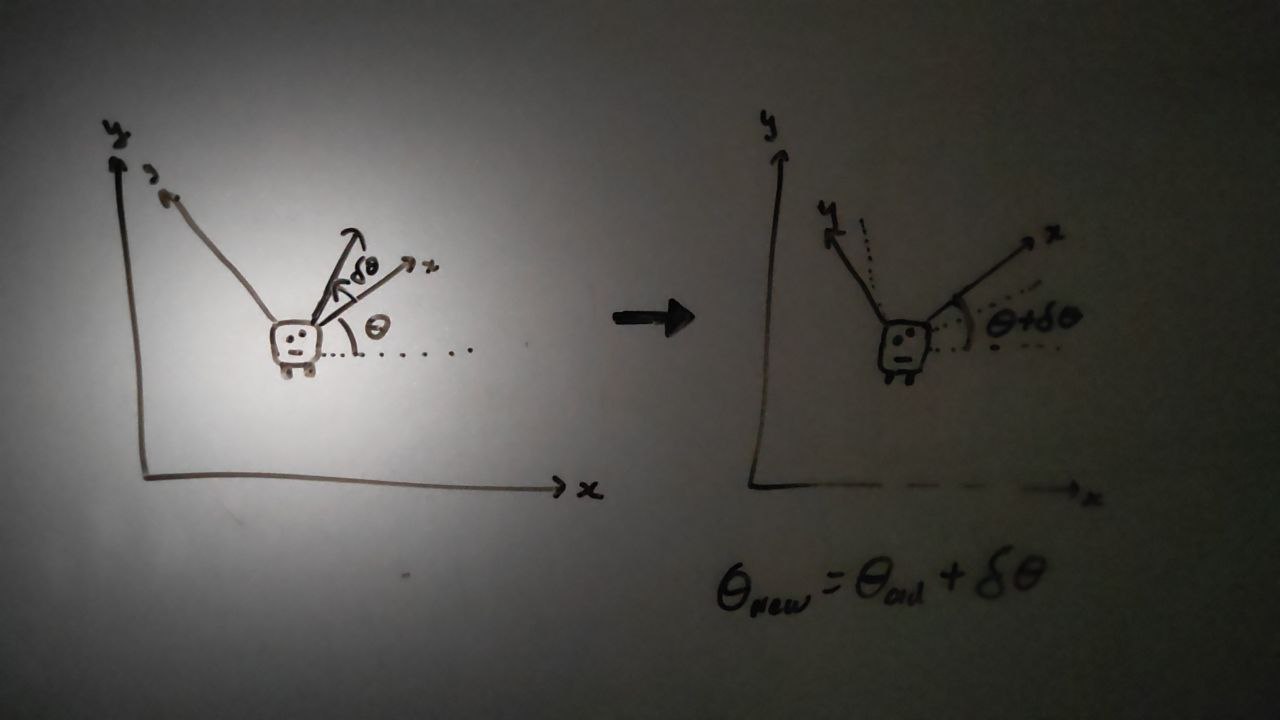 y
y
δθ
x
θ
x
y
y
x
θ+δθ
x
θnew = θold + δθ